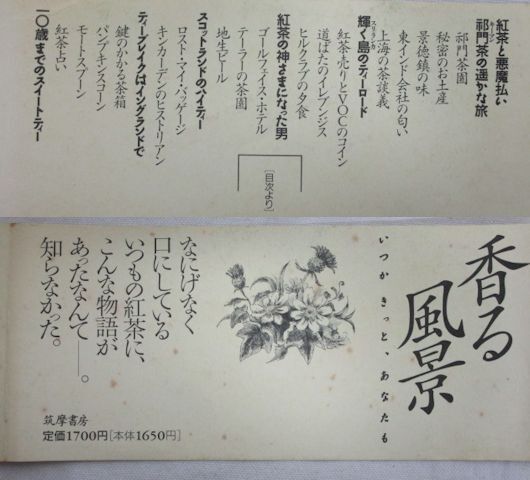 紅茶と悪魔払い
祁門茶の遥かな旅
キーマン
祁門茶園
秘密のお土産
景徳鎮の味
東インド会社の匂い
上海の茶談義
輝く島のティーロード
スリランカ
紅茶売りとVOCのコイン
道ばたのイレブンジス
ヒルクラブの夕食
紅茶の神さまになった男
ゴールフェイス・ホテル
テーラーの茶園
地生ビール
スコットランドのハイティー
ロスト・マイ・バッゲージ
キンカーデンのヒストリアン
ティーブレイクはイングランドで
鍵のかかる茶箱
パンプキンスコーン
モートスプーン
紅茶占い
一〇歳までのスイートティー
[目次より]
香る
風景
いつか きっと、あなたも
なにげなく
口にしている
いつもの紅茶に、
こんな物語が
あったなんて——。
知らなかった。
筑摩書房
定価1700円[本体1650円]